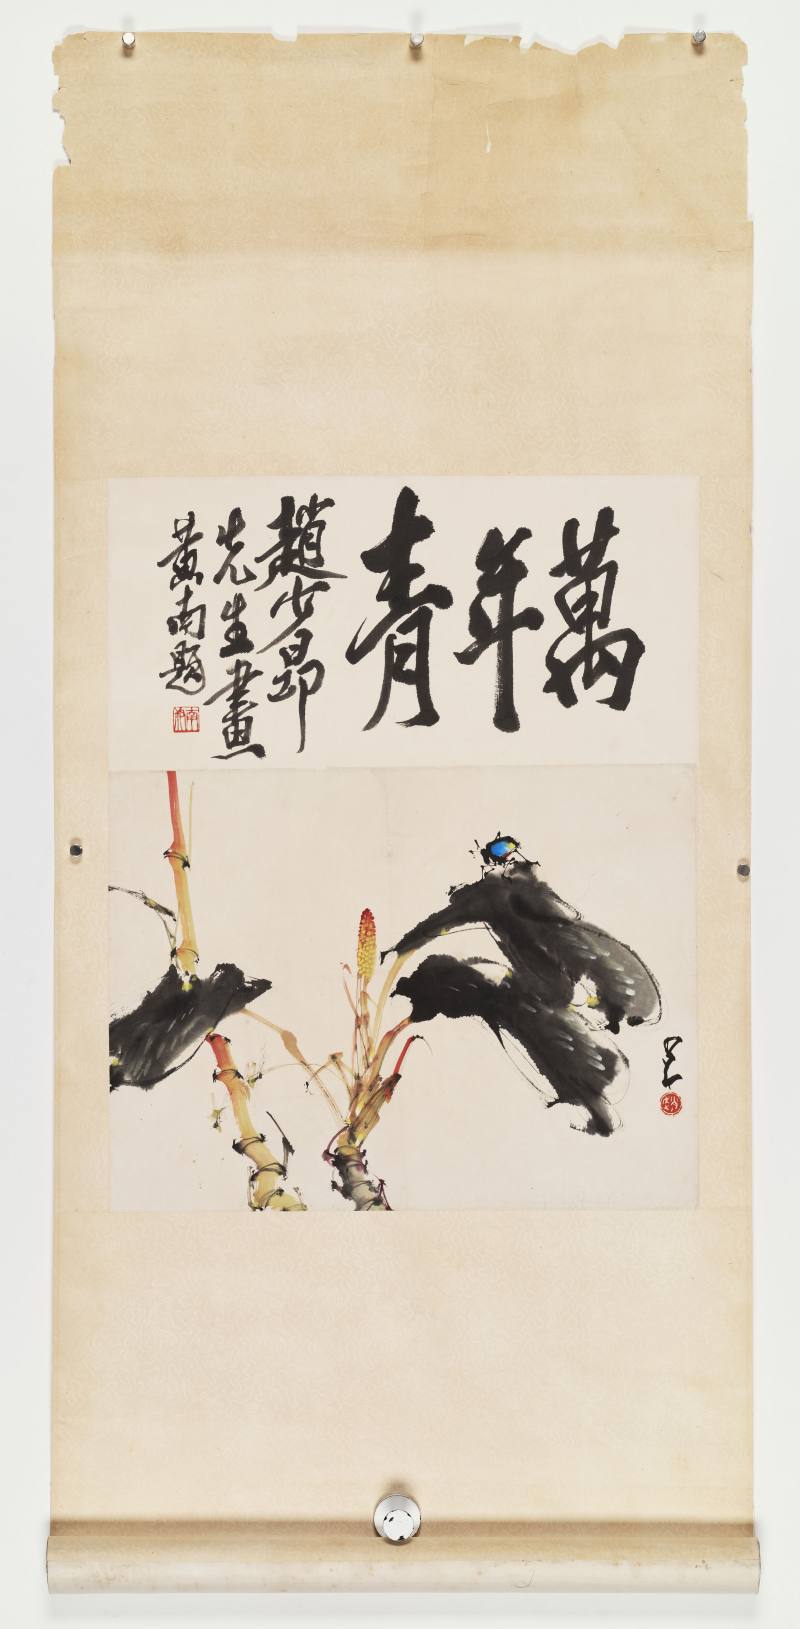 萬年青
趙少昂
先生畫
黃南題